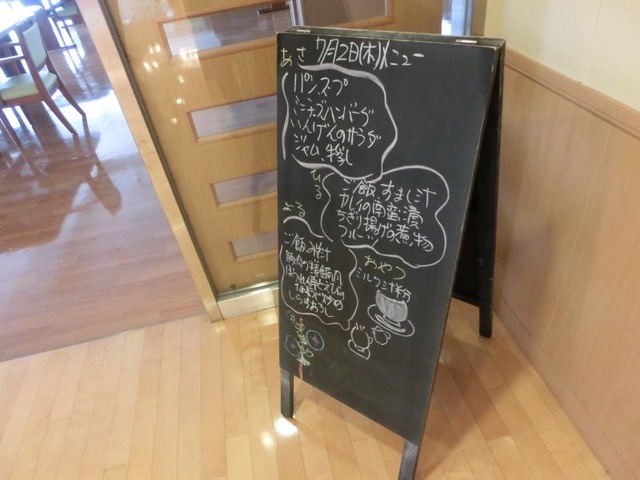 7月2日(木)メニュー
あさ
パン、スープ
ミニチーズハンバーグ
いんげんのサラダ
ジャム、牛乳
ひる
ご飯、すまし汁
カレイの南蛮漬
ちぎり揚げの煮物
フルーツ
よる
ご飯、みそ汁
ほうれん草とえび
しらすおろし
おやつ
ミルク汁粉